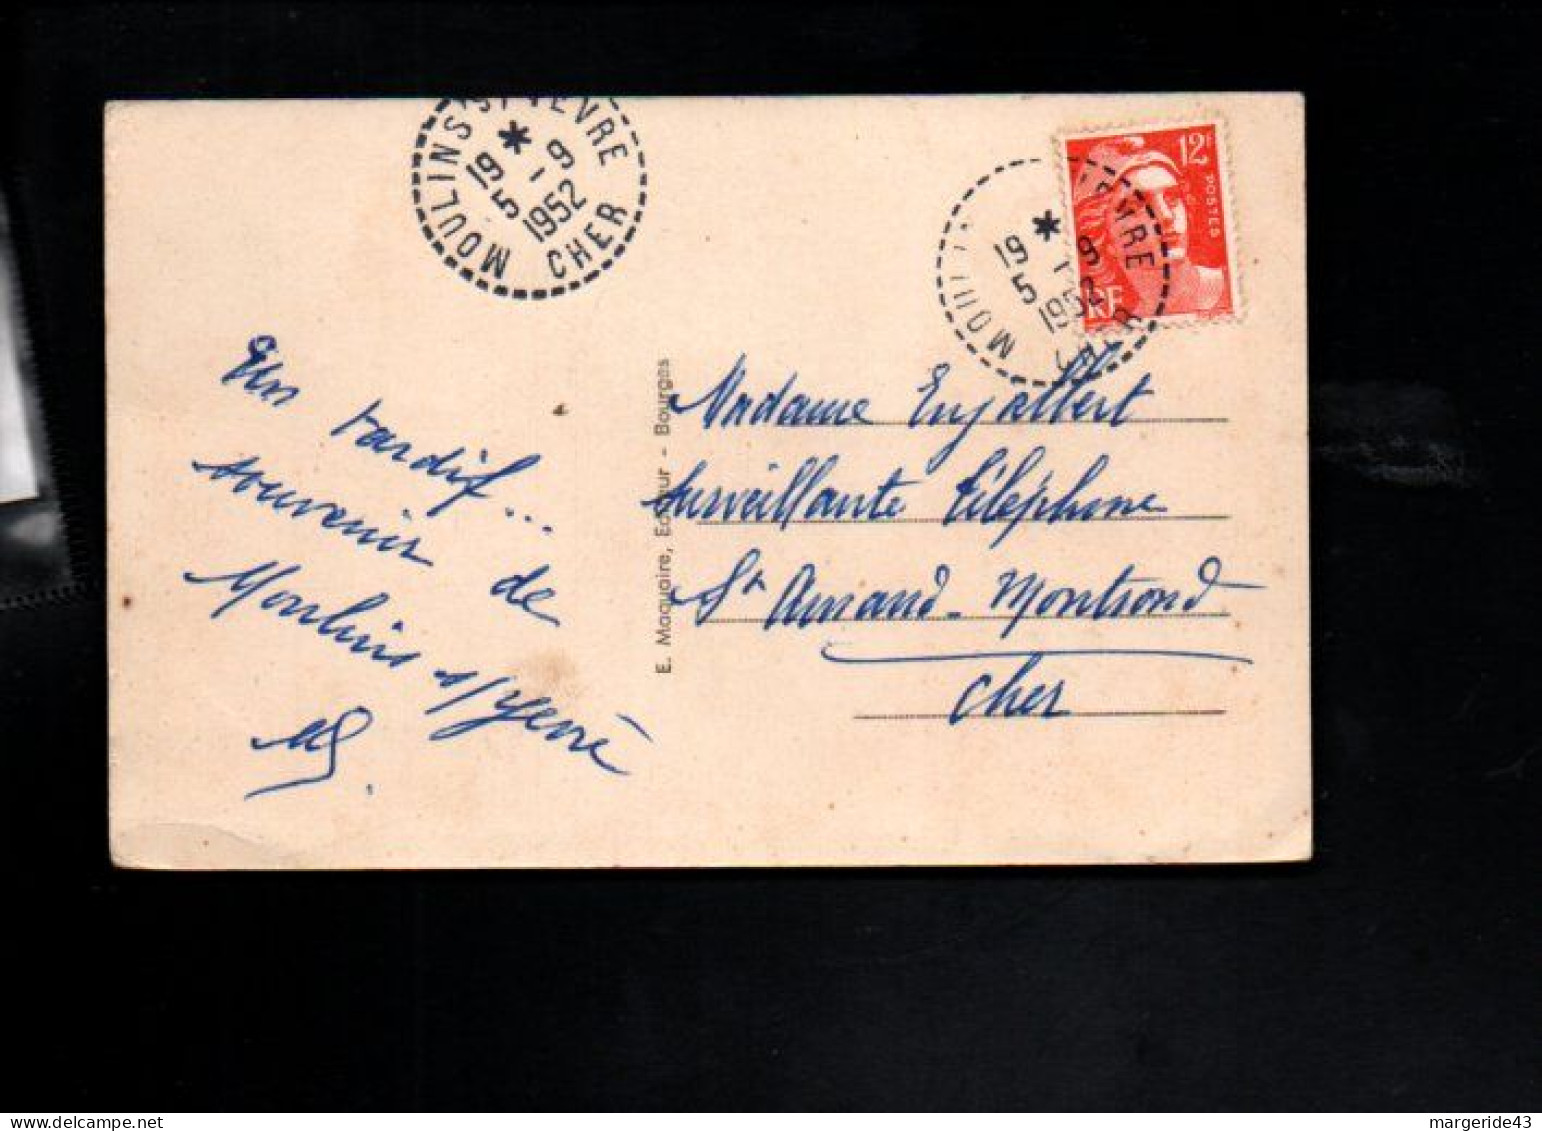 MOULINS S/YEVRE
19 *
5 - 9
1952
CHER
12F
POSTES
RF
MOULINS YEVRE
19 *
5 - 9
1952
CHER
Un tardif...
souvenir de
Moulins s/Yèvre
E. Maquaire, Editeur - Bourges
Madame Enjalbert
surveillante téléphone
St Amand-Montrond
Cher
margeride43